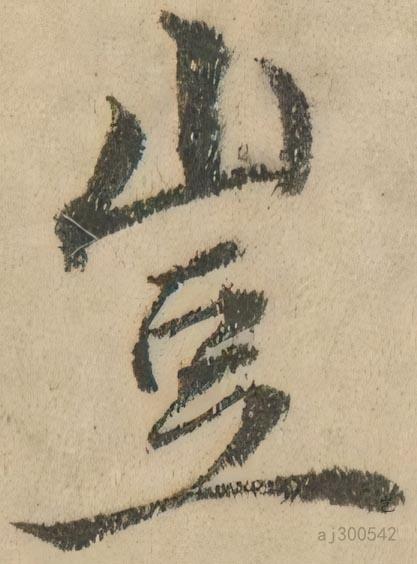 豈
aj300542